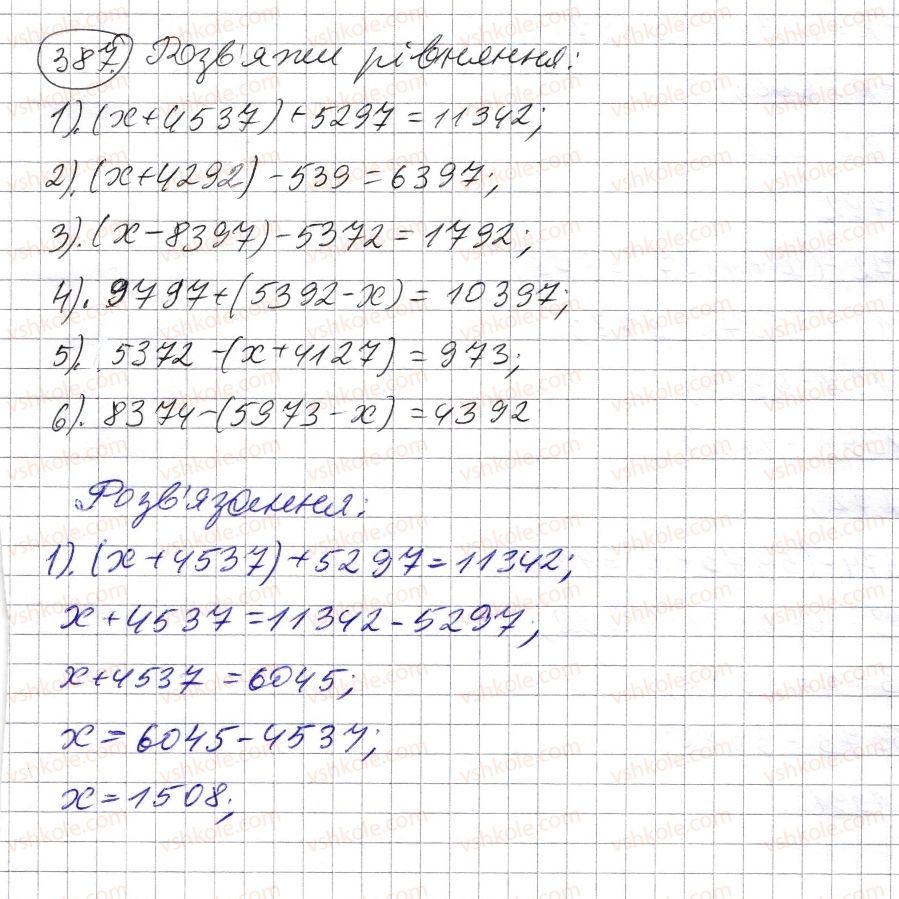 387. Розв'яжи рівняння:
1). (x+4537)+5297=11342;
2). (x+4292)-539=6397;
3). (x-8397)-5372=1792;
4). 9797+(5392-x)=10397;
5). 5372-(x+4127)=973;
6). 8374-(5973-x)=4392
Розв'язання:
1). (x+4537)+5297=11342;
x+4537=11342-5297;
x+4537=6045;
x=6045-4537;
x=1508;